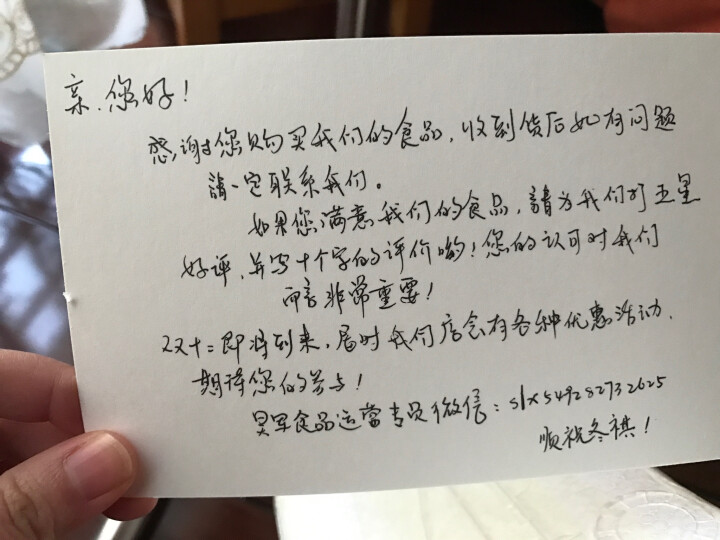 亲.您好!
感谢您购买我们的食品,收到货后如有问题
請一定联系我们。
如果您满意我们的食品,請为我们打五星
好评,并写十个字的评价哟!您的认可对我们
而言非常重要!
双十二即将到来,届时我们店会有各种优惠活动.
期待您的参与!
昊军食品运营专员微信:slx549282732625
顺祝冬祺!